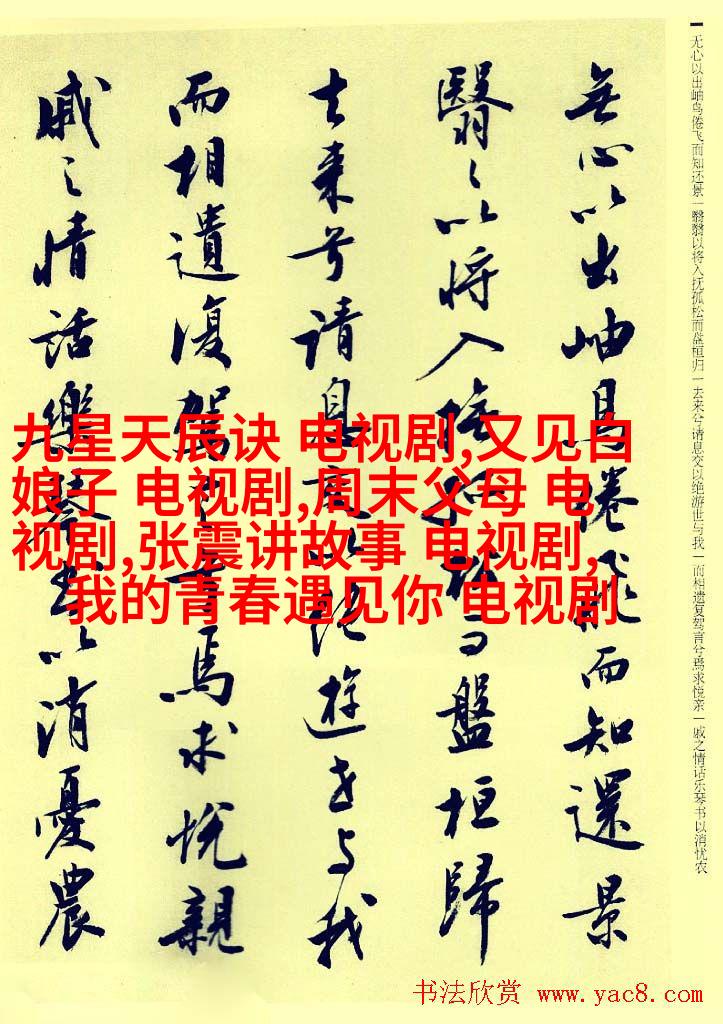 无心以出岫鸟倦飞而知还景一翳翳以将入抚孤松而盘桓归一去来兮请息交以绝游世与我一而相遗复驾言兮焉求悦亲一戚之情话乐琴书以消忧农
無心以出岫鳥倦飛而知還景
翳〻以將入撫孤松而盤桓歸
去來兮請息交以絕遊世與我
而相遺復駕言兮焉求悅親
戚〻情話樂琴書以消憂農
九星天辰诀 电视剧,又见白
娘子 电视剧,周末父母 电
视剧,张震讲故事 电视剧,
我的青春遇见你 电视剧
书法欣赏 www.yac8.com